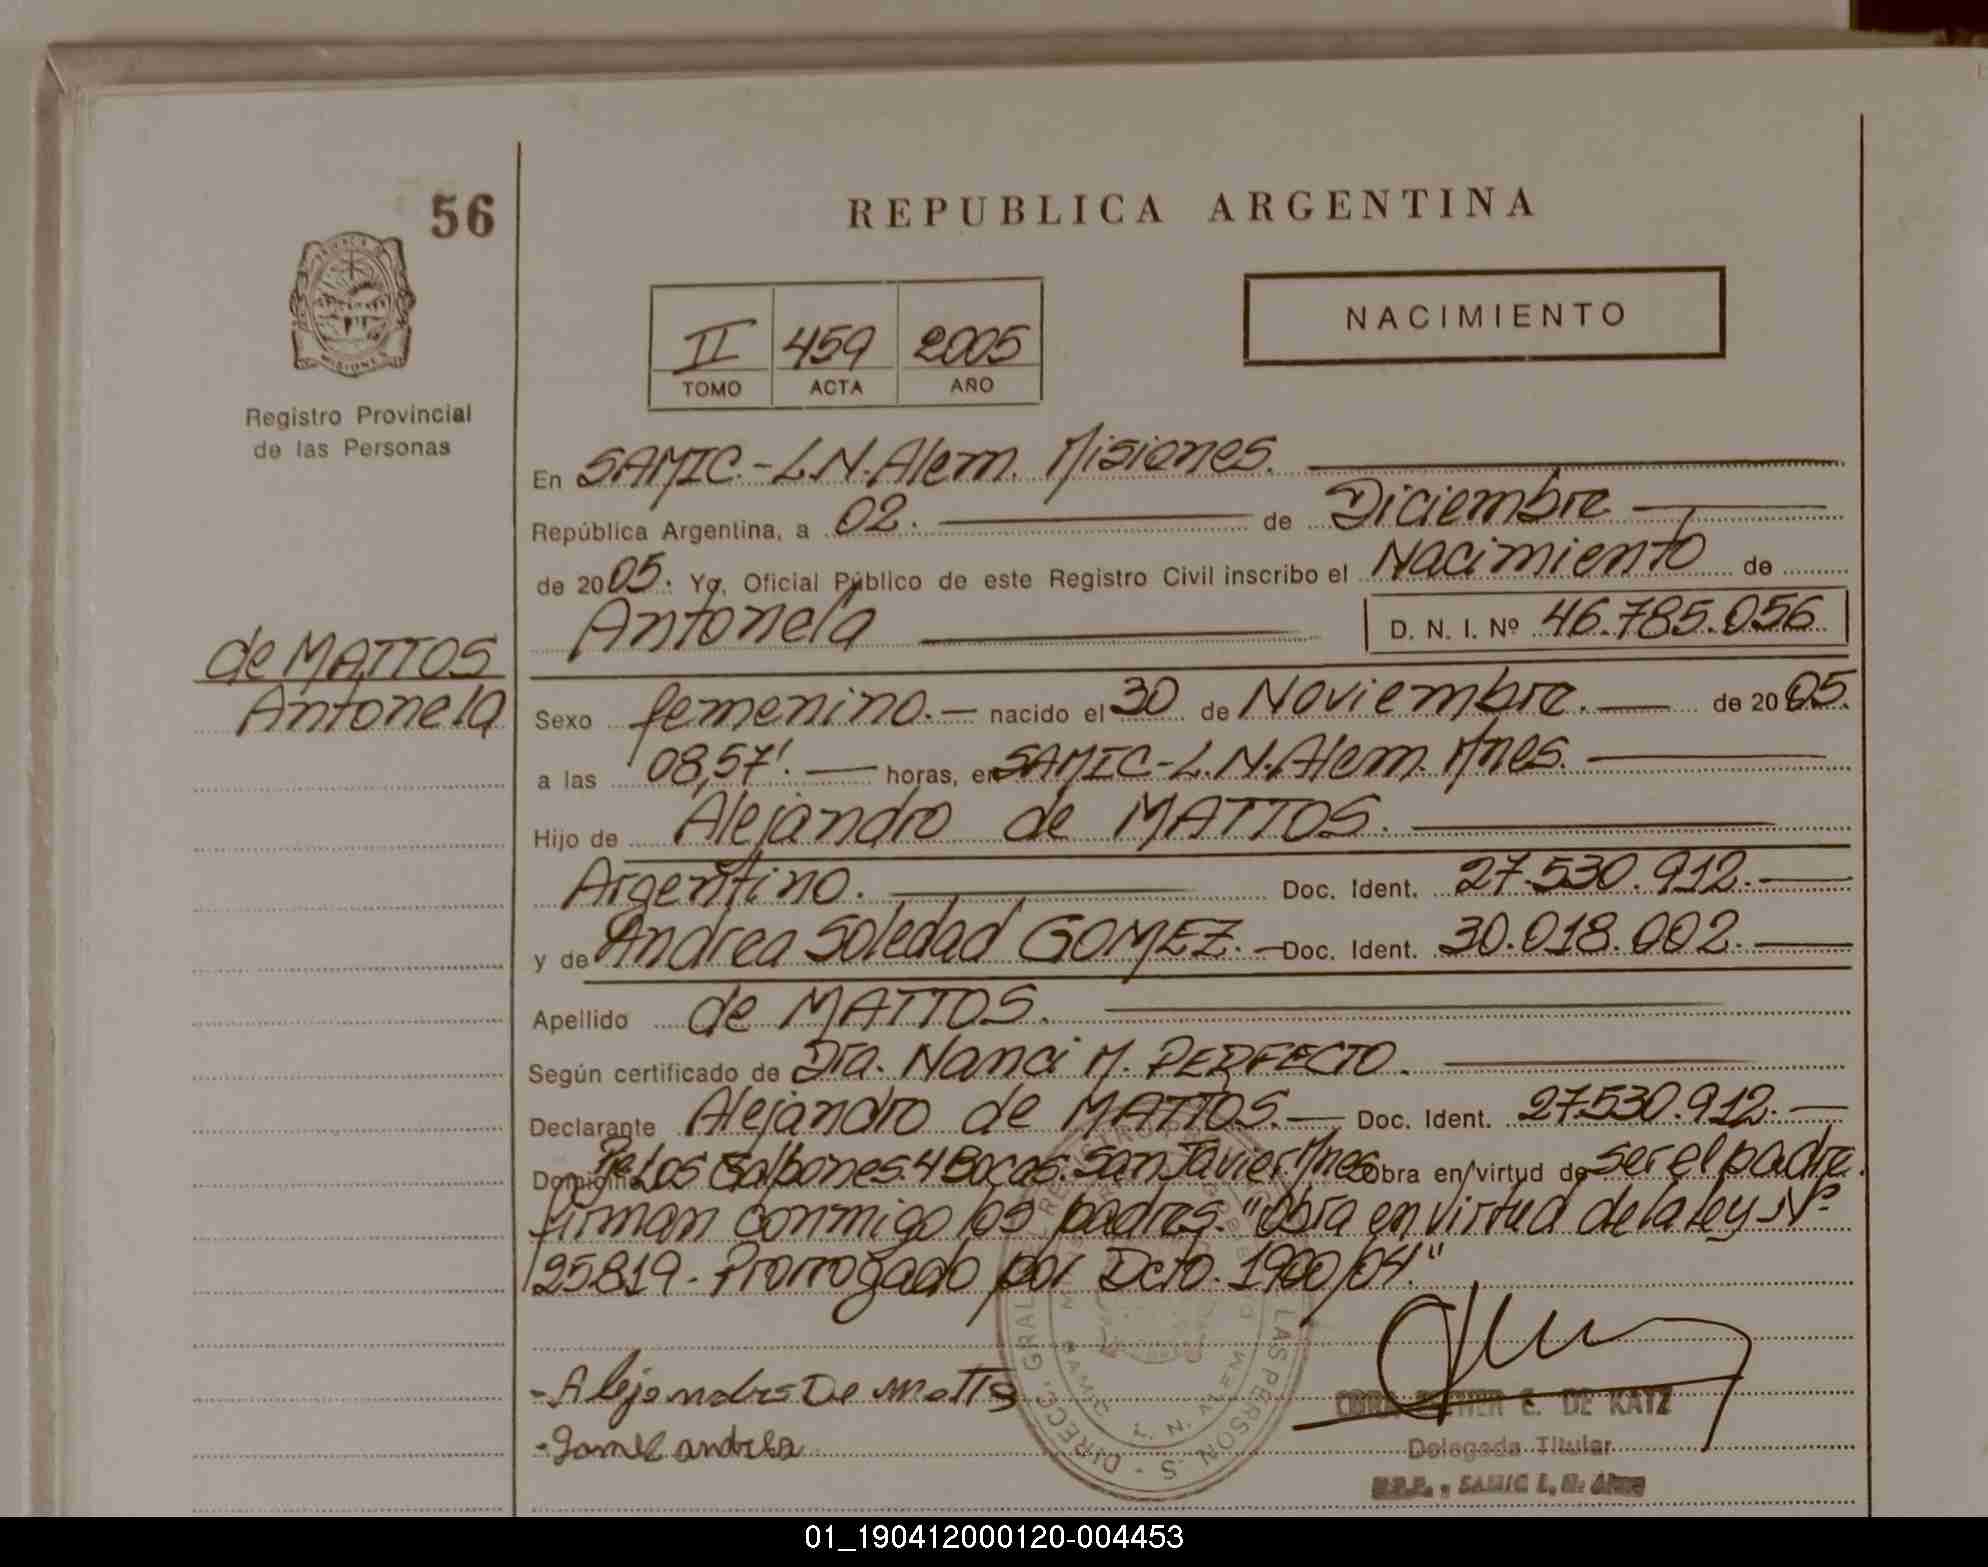 56
REPUBLICA ARGENTINA
MISIONES
Registro Provincial
de las Personas
II 459 2005
TOMO ACTA AÑO
NACIMIENTO
En SAMIC.-L.N.Alem. Misiones.
República Argentina, a 02. de Diciembre
de 2005. Yo, Oficial Público de este Registro Civil inscribo el Nacimiento de
Antonela D. N. I. Nº 46.785.056
de MATTOS
Antonela
Sexo femenino.- nacido el 30 de Noviembre. de 2005.
a las 08,57'. horas, en SAMIC-L.N.Alem. Mnes.
Hijo de Alejandro de MATTOS.
Argentino. Doc. Ident. 27.530.912.
y de Andrea Soledad GOMEZ. Doc. Ident. 30.018.002.
Apellido de MATTOS.
Según certificado de Dra. Nanci M. PERFECTO.
Declarante Alejandro de MATTOS. Doc. Ident. 27.530.912.
Domicilio Los Galpones. 4 Bocas. San Javier. Mnes. Obra en/virtud de ser el padre.
firman conmigo los padres. "Obra en virtud de la Ley Nº
25819- Prorrogado por Dcto. 1900/04."
-Alejandro De Matto
-Gomez andrea
E. DE KATZ
Delegada Titular
SAMIC L. N. Alem
01_190412000120-004453